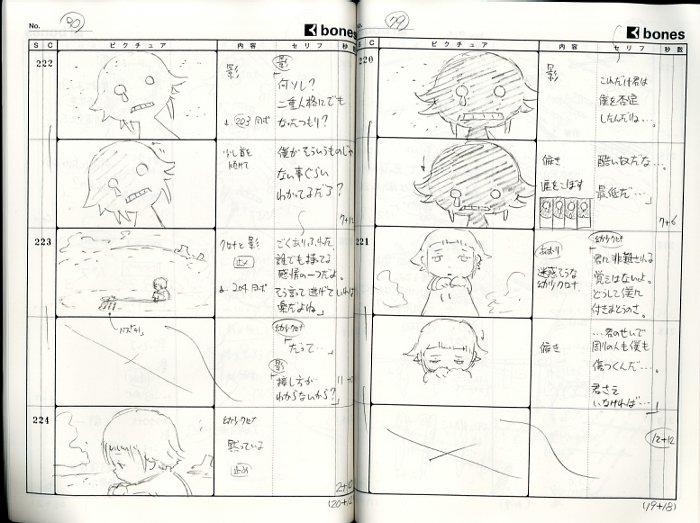 79
bones
S C ピクチュア 内容 セリフ 秒数
220
影
これだけ君は
僕を否定
したんだね…。
俯き
涙をこぼす
酷い奴だな…。
最低だ…」
7+6
221
あおり
迷惑そうな
幼少クロナ
幼少クロナ
「君に非難される
覚えはないよ。
どうして僕に
付きまとうのさ。
俯き
…君のせいで
周りの人も僕も
傷つくんだ…。
君さえ
いなければ…」
12+12
(19+18)
No. 80
bones
S C ピクチュア 内容 セリフ 秒数
222
影
↓203 同ポ
影
「何ソレ?
二重人格にでも
なったつもり?
少し首を
傾けて
僕がそういうものじゃ
ない事ぐらい
わかってるだろ?
7+12
223
クロナと影
止メ
↓204 同ポ
ごくありふれた
誰でも持てる
感情の一つだよ。
そう言って逃げていれば
楽だよね」
幼少クロナ
「だって…」
影
「接し方が
わからないから?」
224
幼少クロナ
黙っている
止メ
(20+12)